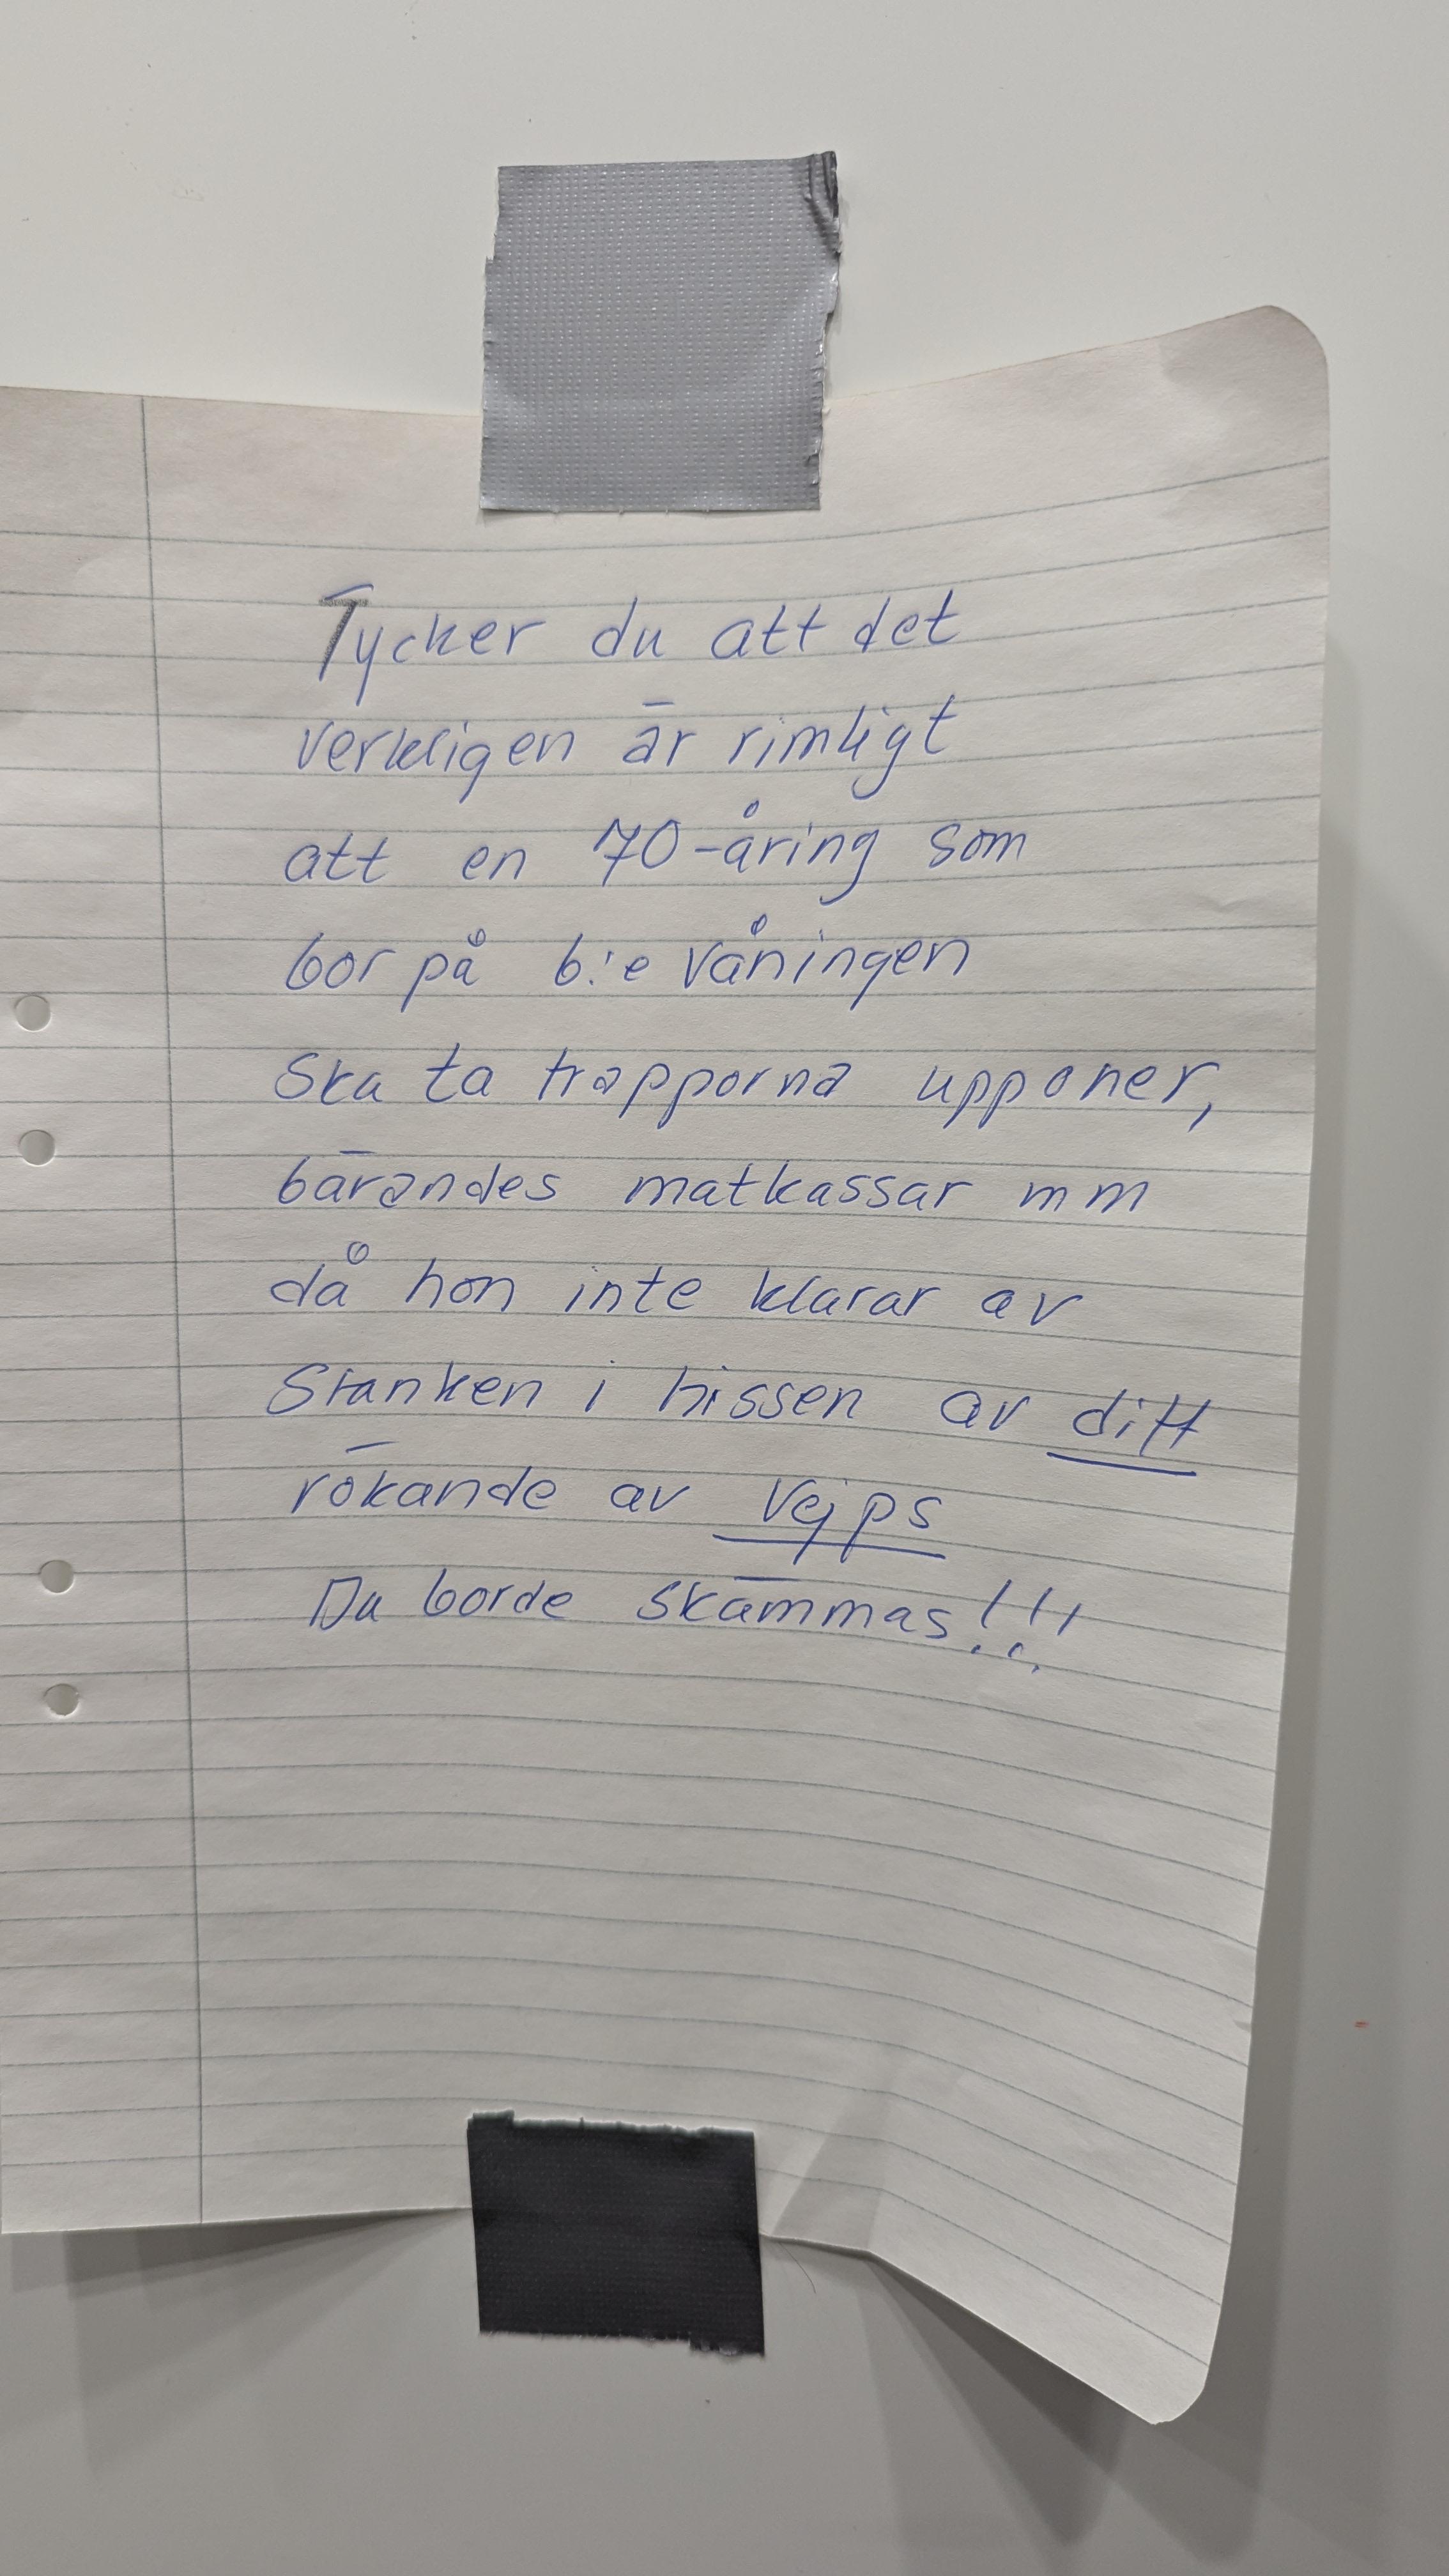 Tycker du att det
verkligen är rimligt
att en 70-åring som
bor på 6:e våningen
ska ta trapporna upponer,
bärandes matkassar mm
då hon inte klarar av
stanken i hissen av ditt
rökande av Vejps
Du borde skämmas!!!